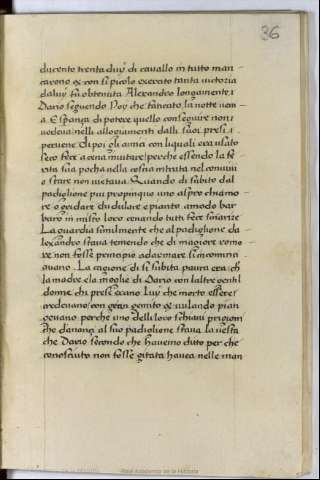 36
ducento trenta duy di cavallo in tutto man
carono & con si picolo exercito tanta victoria
da luy fu obtenuta Alexandro longamente
Dario seguendo Poy che sancato la notte veni
a. E speranza di potere quello conseguire non
vedeva nelli allogiamenti dalli suoi presi.
pervene di poi gli amici con li quali era usato
seco fece a cena invitare perche essendo la fe
rita sua pocha nella coscia intrata nel convivio
o stare non vietava. Quando di subito dal
padiglione piu propinquo uno aspro chiamo
re o cridare di dulore e pianto a modo bar
baro in misto loro cenando tutti fece smarire
La guardia similmente che al padiglione da
lexandro stava temendo che di magiore romo
re non fosse principio ad armare si incominci
avano. La cagione di si subita paura era: ch
la madre e la moglie di Dario con laltre gentil
donne che prese erano Luy che morto essere
credevano: con gran gemito & iulando pian
gevano perche uno delli loro schiavi prigioni
che davanti al suo padiglione stava la vesta
che Dario secondo che havemo ditto per che
conosciuto non fosse gitata havea nelle man
Real Academia de la Historia